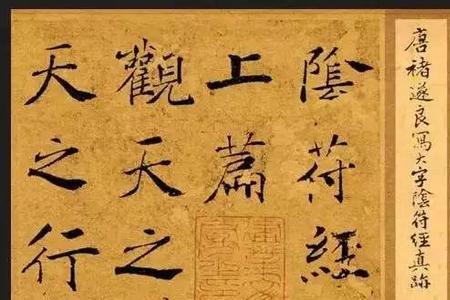 唐褚遂良寫大字陰符經真跡
陰符經
上篇
觀天之
天之行